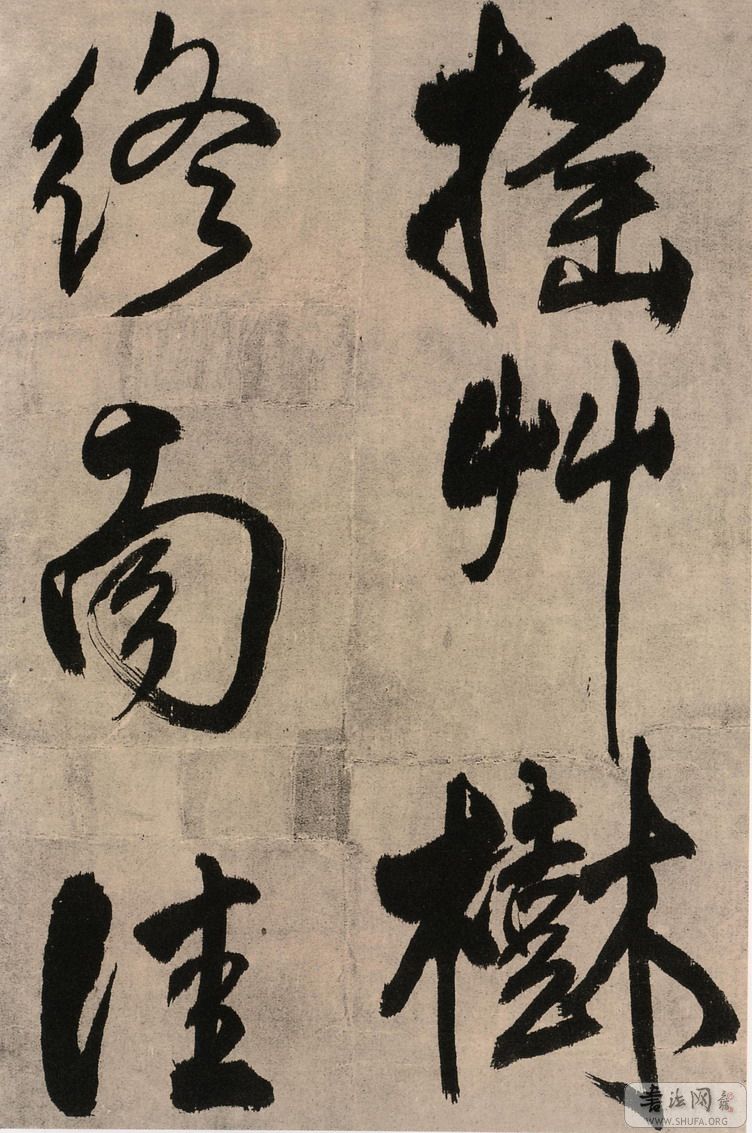 搖艸樹
終南佳
書法网
WWW.SHUFA.ORG